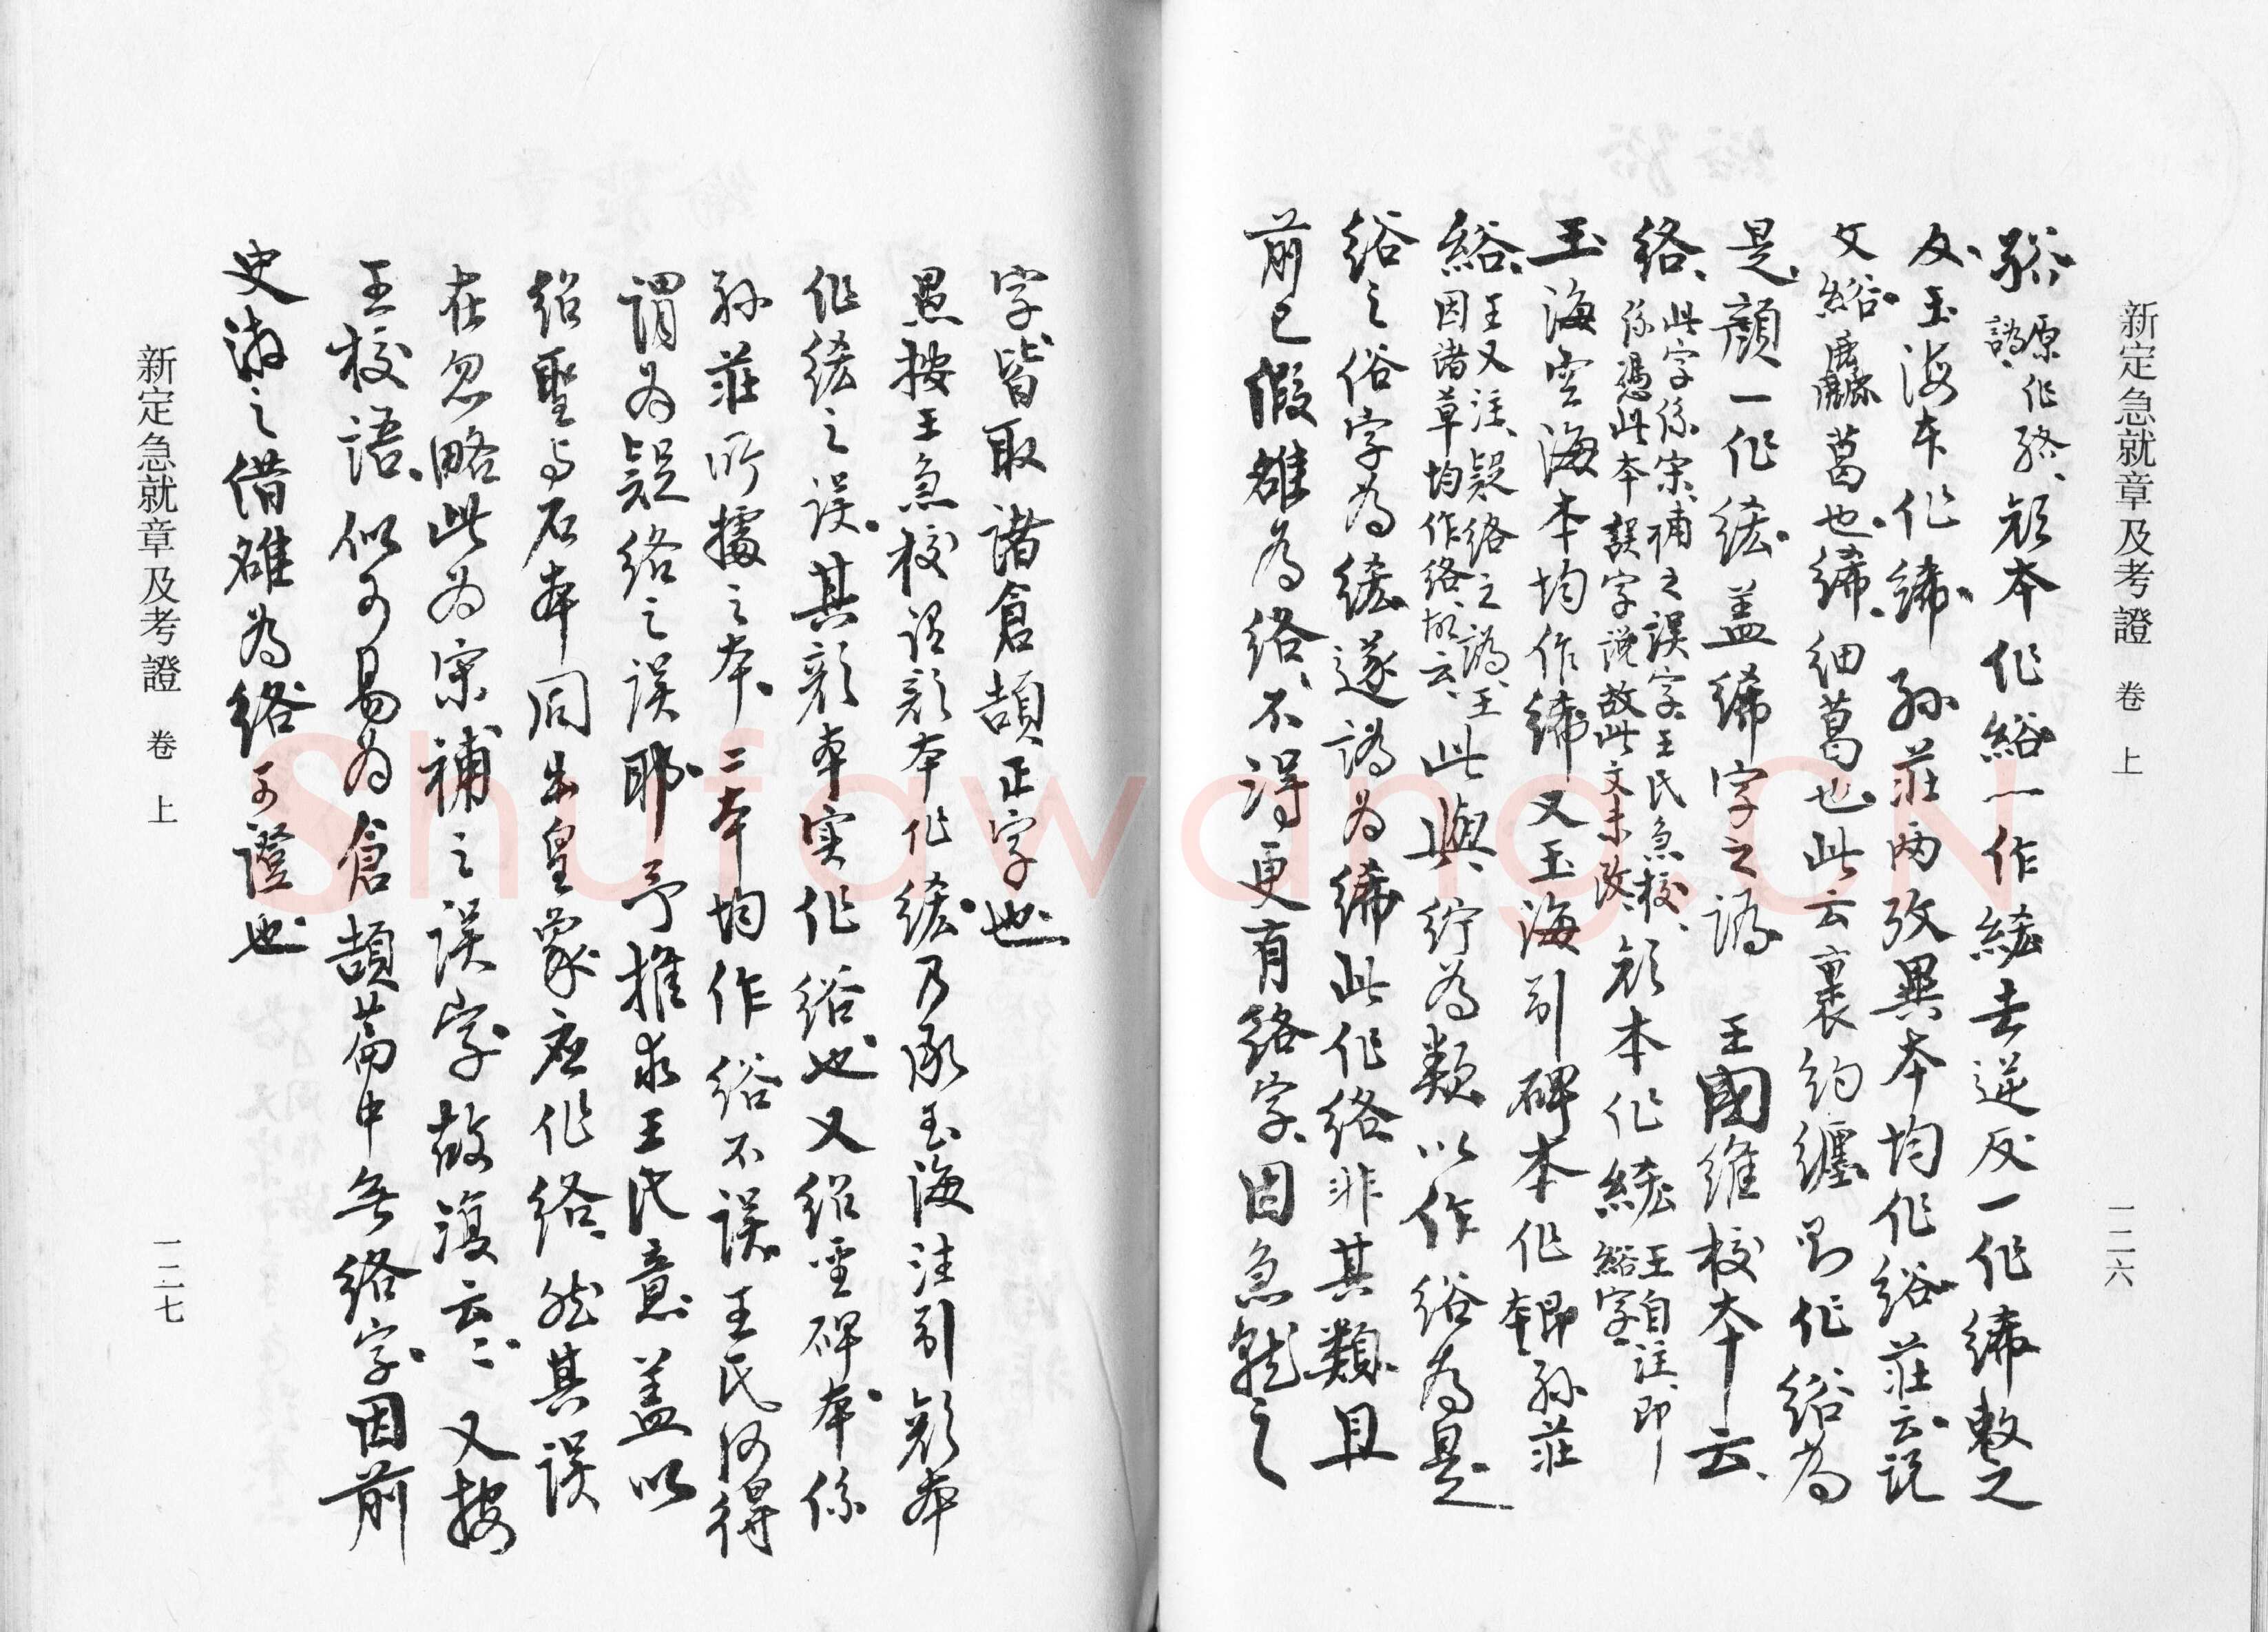 新定急就章及考證 卷上
一二六
綌原作綌譌顏本作綌一作綊去逆反一作絺敕之
反玉海本作絺孫莊兩攷異本均作綌莊云説
文綌麤葛也絺細葛也此云裹約纏則作綌為
是顏一作綊蓋絺字之譌 王國維校本云
綌此字係宋補之誤字王氏急校係憑此本誤字説故此文未改顏本作綊王自注即綌字
玉海空海本均作絺又玉海引碑本作即孫莊本
綌王又注疑絡之譌王因諸草均作絡故云此與紵為類以作綌為是
綌之俗字為綊遂譌為絺此作絡非其類且
前已假雒為絡不得更有絡字因急就之
字皆取諸倉頡正字也
愚按王急校謂顏本作綊乃承玉海注引顏本
作綊之誤其顏本實作綌也又紹聖碑本係
孫莊所據之本二本均作綌不誤王氏何得
謂為疑絡之誤耶予推求王氏意蓋以
紹聖與石本同出皇象應作絡然其誤
在忽略此為宋補之誤字故復云云又按
王校語似可易為倉頡篇中無絡字因前
史游之借雒為絡可證也
新定急就章及考證 卷上
一二七
Shufawang.CN